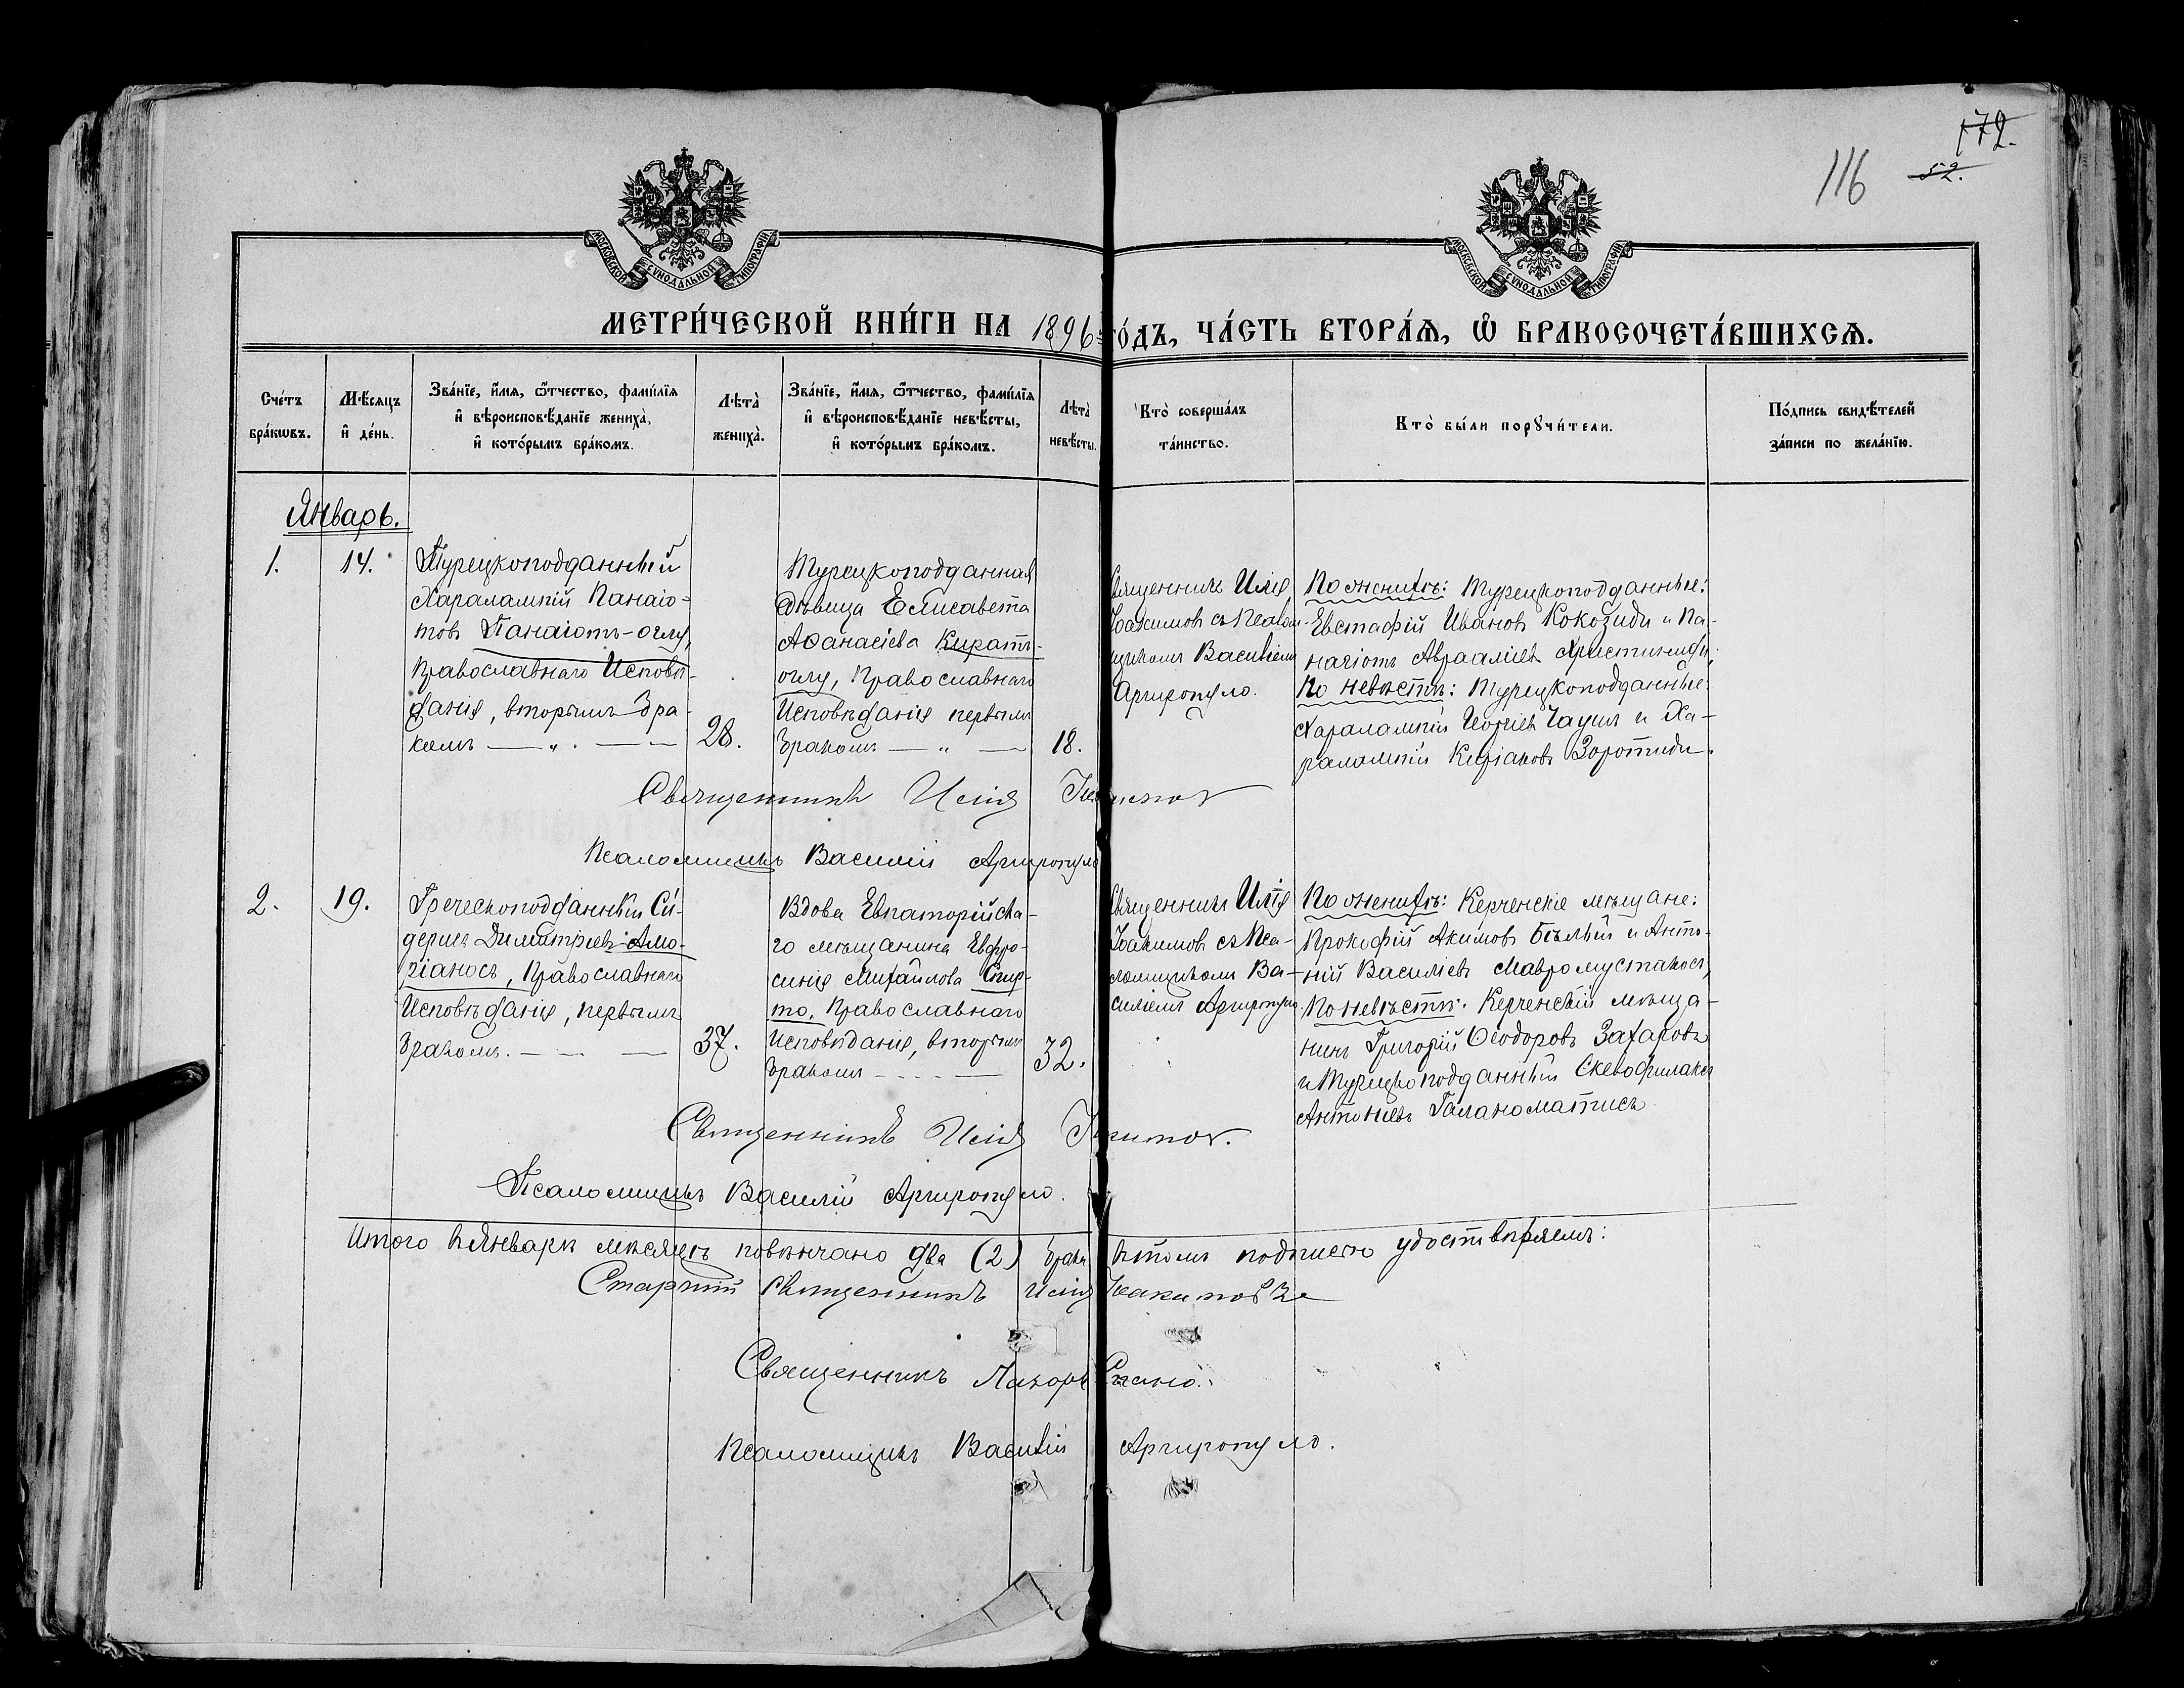 172.
52.
116
МОСКОВСКОЙ СѴНОДАЛЬНОЙ ТИПОГРАФІИ
МОСКОВСКОЙ СѴНОДАЛЬНОЙ ТИПОГРАФІИ
МЕТРИ́ЧЕСКОЙ КНИ́ГИ НА 1896 го́дъ, ЧА́СТЬ ВТОРА́Я, Ѡ҆ БРАКОСОЧЕТА́ВШИХСѦ.
Сче́тъ
бра́кѡвъ.
Мѣ́сяцъ
и҆ де́нь.
Зва́нїе, и҆́мя, ѻ҆́тчество, фами́лїя
и҆ вѣроисповѣ́данїе жениха̀,
и҆ кото́рымъ бра́комъ.
Лѣта̀
жениха̀.
Зва́нїе, и҆́мя, ѻ҆́тчество, фами́лїя
и҆ вѣроисповѣ́данїе невѣ́сты,
и҆ кото́рымъ бра́комъ.
Лѣта̀
невѣ́сты.
Кто̀ соверша́лъ
та́инство.
Кто̀ бы́ли порꙋчи́тели.
По́дпись свидѣ́телей
за́писи по жела́нїю.
Январь.
1.
14.
Турецкоподданный
Харалампій Панаіо-
товъ Панаіотъ-оглу,
Православнаго Исповѣ-
данія, вторымъ бра-
комъ — „ . — —
28.
Турецкоподданная
дѣвица Елисавета
Аѳанасіева Киратъ-
оглу, Православнаго
Исповѣданія первымъ
бракомъ — „ —
18.
Священникъ Илія
Іоакимовъ съ Псалом-
щикомъ Василіемъ
Аргиропуло.
По женихѣ: Турецкоподданные:
Евстафій Ивановъ Кокозиди и Па-
наіотъ АвраамІевъ
По невѣстѣ: Турецкоподданные:
Харалампій Чаушъ и Ха-
ралампій Киріаковъ Зоротиди.
Священникъ Илія Іоакимов
Псаломщикъ Василій Аргиропуло
2.
19.
Греческоподданный Си-
дерисъ Димитріевъ Амо-
ргіаносъ, Православнаго
Исповѣданія, первымъ
бракомъ. — — —
37.
Вдова Евпаторійска-
го мѣщанина Евфро-
синія Михайлова
Православнаго
Исповѣданія, вторымъ
бракомъ - - - —
32.
Священникъ Илія
Іоакимовъ съ Пса-
ломщикомъ Ва-
силіемъ Аргиропуло.
По женихѣ: Керченскіе мѣщане:
Прокофій Акимовъ Бѣлый и Анто-
ній Василіевъ Мавромустакосъ,
По невѣстѣ: Керченскій мѣща-
нинъ Григорій Ѳеодоровъ Захаровъ
и Турецкоподданный Скевофилаксъ
Антоніевъ Галаноматисъ
Священникъ Илія Іоакимов.
Псаломщикъ Василій Аргиропуло.
Итого въ Январѣ мѣсяцѣ повѣнчано два (2) брака въ томъ подписью удостовѣряемъ:
Старшій священникъ Илія Іоакимовъ
Священникъ Лазорь
Псаломщикъ Василій Аргиропуло.